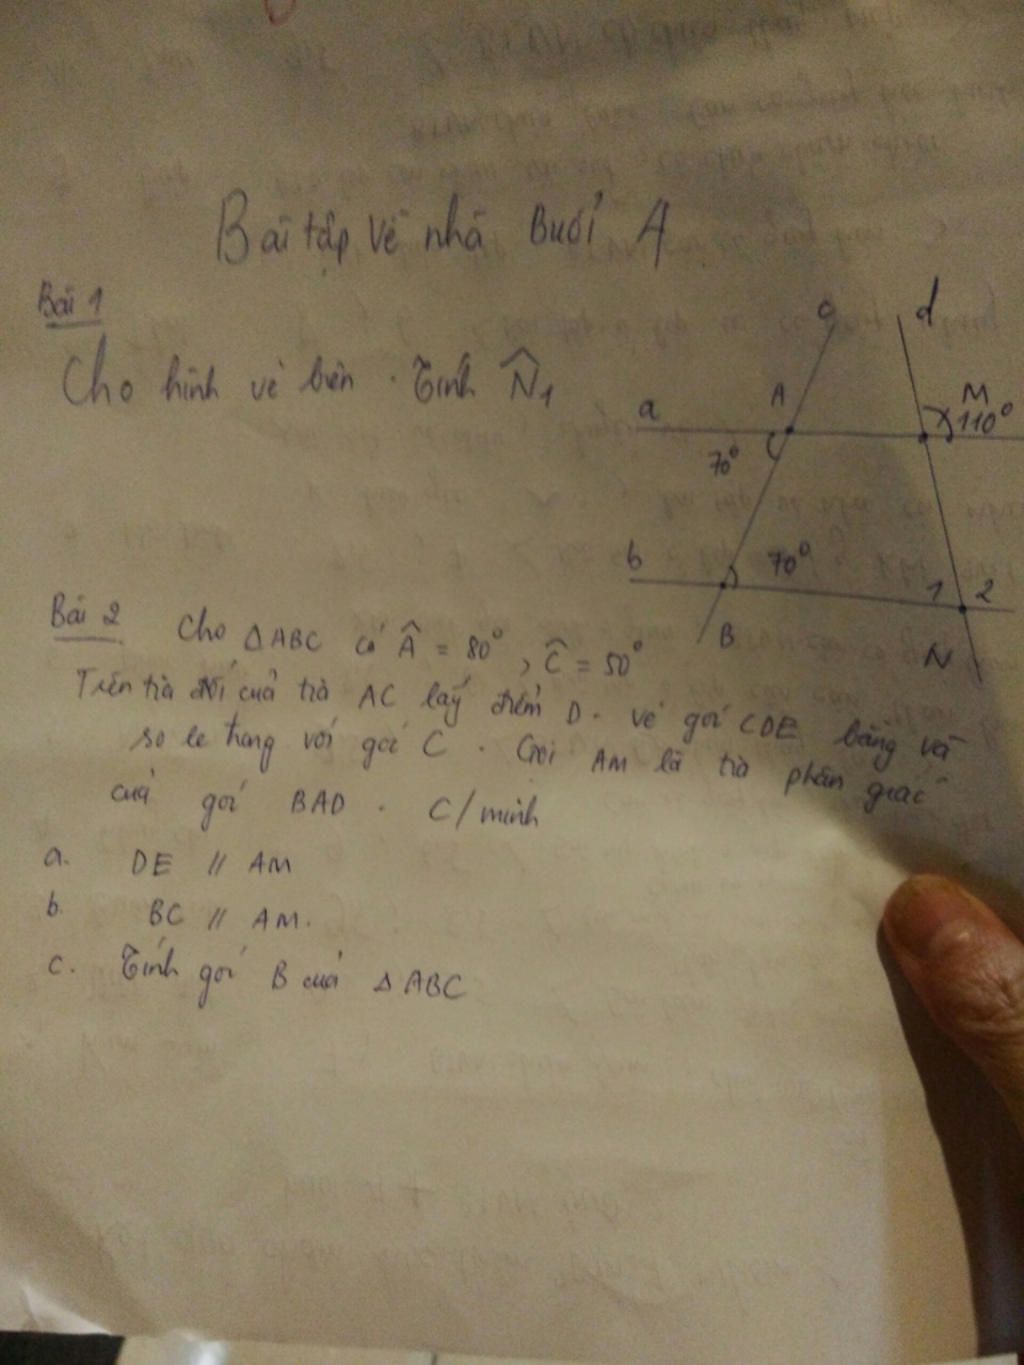 Bài tập về nhà Buổi 4
Bài 1
Cho hình vẽ bên. Tính N̂1
c
d
a
A
M
110°
70°
b
70°
1 2
B
N
Bài 2 Cho △ABC có Â = 80°, Ĉ = 50°
Trên tia đối của tia AC lấy điểm D. vẽ góc CDE bằng và
so le trong với góc C. Gọi AM là tia phân giác
của góc BAD. C/minh
a. DE // AM
b. BC // AM.
c. Tính góc B của △ABC